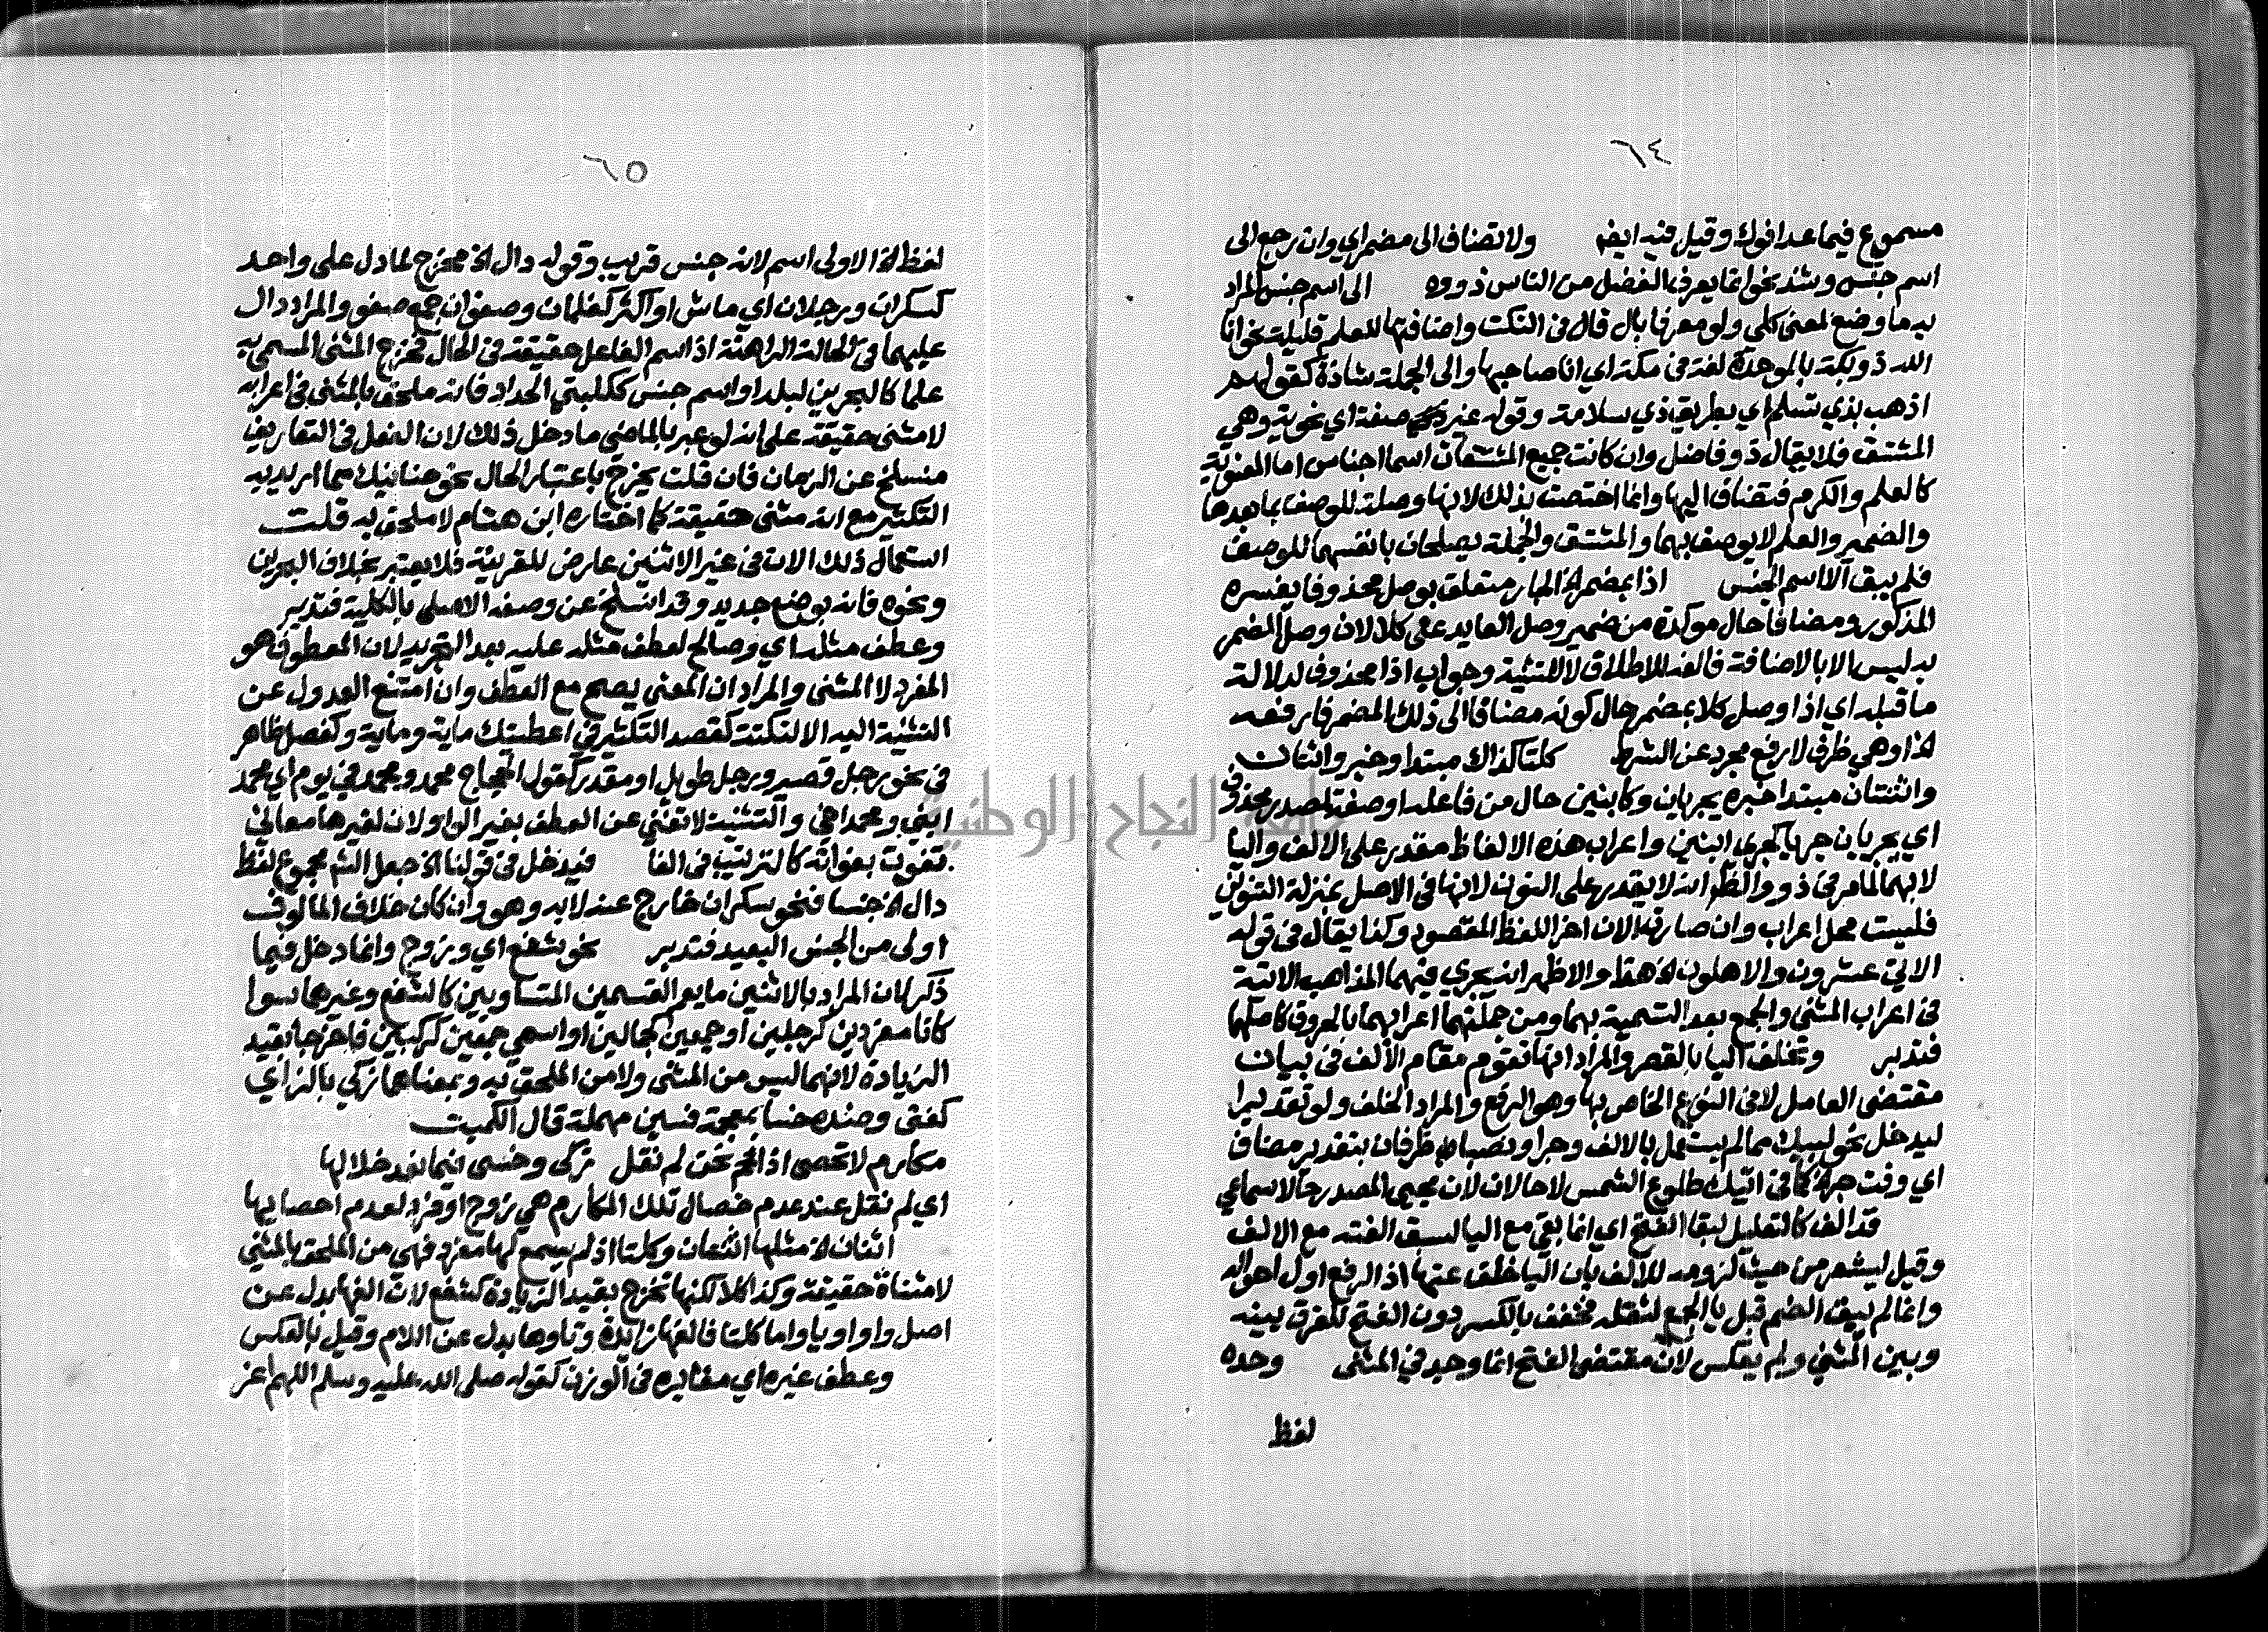 ٦٤
مسموع فيما عدا فوك وقيل فيه ايضا ولا تضاف الى مضمر اي وان رجع الى
اسم جنس وشذ نحو انما يعرف الفضل من الناس ذووه الى اسم جنس المراد
به ما وضع لمعنى كلي ولو معرفا بال قال في النكت واضافتها للعلم قليلة نحو انا
الله ذو بكة بالموحدة لغة في مكة اي انا صاحبها والى الجملة شاذة كقولهم
اذهب بذي تسلم اي بطريق ذي سلامة وقوله غير صفة اي نحوية وهي
المشتق فلا يقال ذو فاضل وان كانت جميع المشتقات اسما اجناس اما المعنوية
كالعلم والكرم فتضاف اليها وانما اختصت بذلك لانها وصلة للوصف بما بعدها
والضمير والعلم لا يوصف بهما والمشتق والجملة يصلحان بانفسهما للوصف
فلم يبق الا اسم الجنس اذا بمضمر الخ الجار متعلق بوصل محذوفا يفسره
المذكور ومضافا حال موكدة من ضمير وصل العايد على كلا لان وصل المضمر
به ليس الا بالاضافة فالفه للاطلاق لا للتثنية وجواب اذا محذوف لدلالة
ما قبله اي اذا وصل كلا بمضمر حال كونه مضافا الى ذلك المضمر فارفعه
الخ او هي ظرف لارفع مجرد عن الشرط كلتا كذاك مبتدا وخبر واثنان
واثنتان مبتدا خبره يجريان وكابنين حال من فاعله او صفة لمصدر محذوف
اي يجريان جريا كجري ابنين واعراب هذه الالفاظ مقدر على الالف واليا
لا بهما لما مر في ذو والظهر انه لا يقدر على النون لانها في الاصل بمنزلة التنوين
فليست محل اعراب وان صارت الان اخر اللفظ المقصود وكذا يقال في قوله
الاتي عشرون والاهلون الخ هذا والاظهر انه يجري فيهما المذاهب الاتية
في اعراب المثنى والجمع بعد التسمية بهما ومن جملتها اعرابهما بالحروف كاصلها
فتدبر وتخلف اليا بالقصر والمراد انها تقوم مقام الالف في بيان
مقتضى العامل لا في النوع الخاص بها وهو الرفع والمراد الخلف ولو تقديرا
ليدخل نحو لبيك مما لم يستعمل بالالف وجرا ونصبا ظرفان بتقدير مضاف
اي وقت جر الخ كما في اتيك طلوع الشمس لا حالان لان مجيي المصدر حالا سماعي
قد الف كالتعليل لبقا الفتح اي انما بقي مع اليا لسبق الفته مع الالف
وقيل ليشعر من حيث لزومه للالف بان اليا خلف عنها اذ الرفع اول احواله
وانما لم يبق الضم قبل يا الجمع لثقله فخفف بالكسر دون الفتح للفرق بينه
وبين المثنى ولم يعكس لان مقتضى الفتح انما وجد في المثنى وحده
لفظ
٦٥
لفظ الخ الاولى اسم لانه جنس قريب وقوله دال الخ مخرج لما دل على واحد
كسكران ورجلان اي ماش او اكثر كغلمان وصنوان جمع صنو والمراد دال
عليهما في الحالة الراهنة اذ اسم الفاعل حقيقة في الحال فخرج المثنى المسمى به
علما كالبحرين لبلد او اسم جنس ككلبتي الحداد فانه ملحق بالمثنى في اعرابه
لا مثنى حقيقة على انه لو عبر بالماضي ما دخل ذلك لان الفعل في التعاريف
منسلخ عن الزمان فان قلت يخرج باعتبار الحال نحو حنانيك مما اريد به
التكثير مع انه مثنى حقيقة كما اختاره ابن هشام لا ملحق به قلت
استعمال ذلك الان في غير الاثنين عارض للقرينة فلا يعتبر بخلاف البحرين
ونحوه فانه بوضع جديد وقد انسلخ عن وصفه الاصلي بالكلية فتدبر
وعطف مثله اي وصالح لعطف مثله عليه بعد التجريد لان المعطوف هو
المفرد لا المثنى والمراد ان المعنى يصح مع العطف وان امتنع العدول عن
التثنية اليه الا لنكتة كقصد التكثير في اعطيتك ماية وماية وكفصل ظاهر
في نحو رجل قصير ورجل طويل او مقدر كقول الحجاج محمد ومحمد في يوم اي محمد
ابني ومحمد اخي والتثنية لا تغني عن العطف بغير الواو لان لغيرها معاني
تفوت بفواته كالترتيب في الفا فيدخل في قولنا الخ جعل الشم مجموع لفظ
دال الخ جنسا فنحو سكران خارج عنه لا به وهو وان كان خلاف المالوف
اولى من الجنس البعيد فتدبر نحو شفع اي وزوج وانما دخل فيما
ذكر لان المراد بالاثنين ما يعم القسمين المتساويين كالشفع وغيرهما سوا
كانا مفردين كرجلين او جمعين كجمالين او اسمي جمعين كركبين فاخرجا بقيد
الزيادة لانهما ليس من المثنى ولا من الملحق به وبمعناهما زكي بالزاي
كفتى وضده خسا بمعجمة فسين مهملة قال الكميت
مكارم لا تحصى اذا نحن لم نقل زكى وخسى فيما نعد خلالها
اي لم نقل عند عدم خصال تلك المكارم هي زوج او فرد لعدم احصايها
اثنان الخ مثلها اثنتان وكلتا اذ لم يسمع لها مفرد فهي من الملحق بالمثنى
لا مثناة حقيقة وكذا كلا لكنها تخرج بقيد الزيادة كشفع لان الفها بدل عن
اصل واو او يا واما كلتا فالفها زائدة وتاوها بدل عن اللام وقيل بالعكس
وعطف غيره اي مغايره في الوزن كقوله صلى الله عليه وسلم اللهم اعز
جامعة النجاح الوطنية